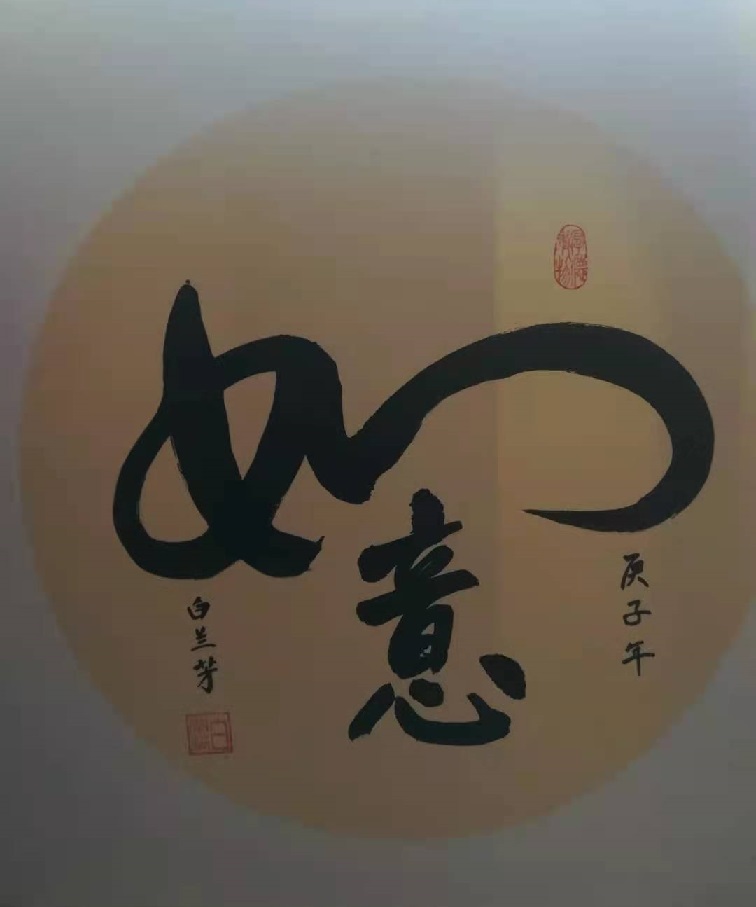 如意
庚子年
白兰芳